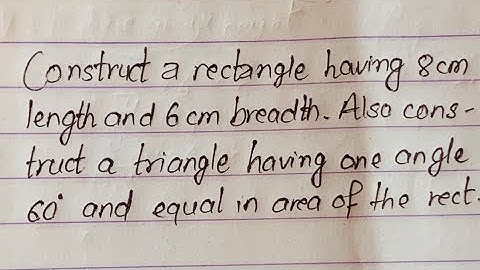 Construct a rectangle having 8cm
length and 6 cm breadth. Also cons-
truct a triangle having one angle
60° and equal in area of the rect.